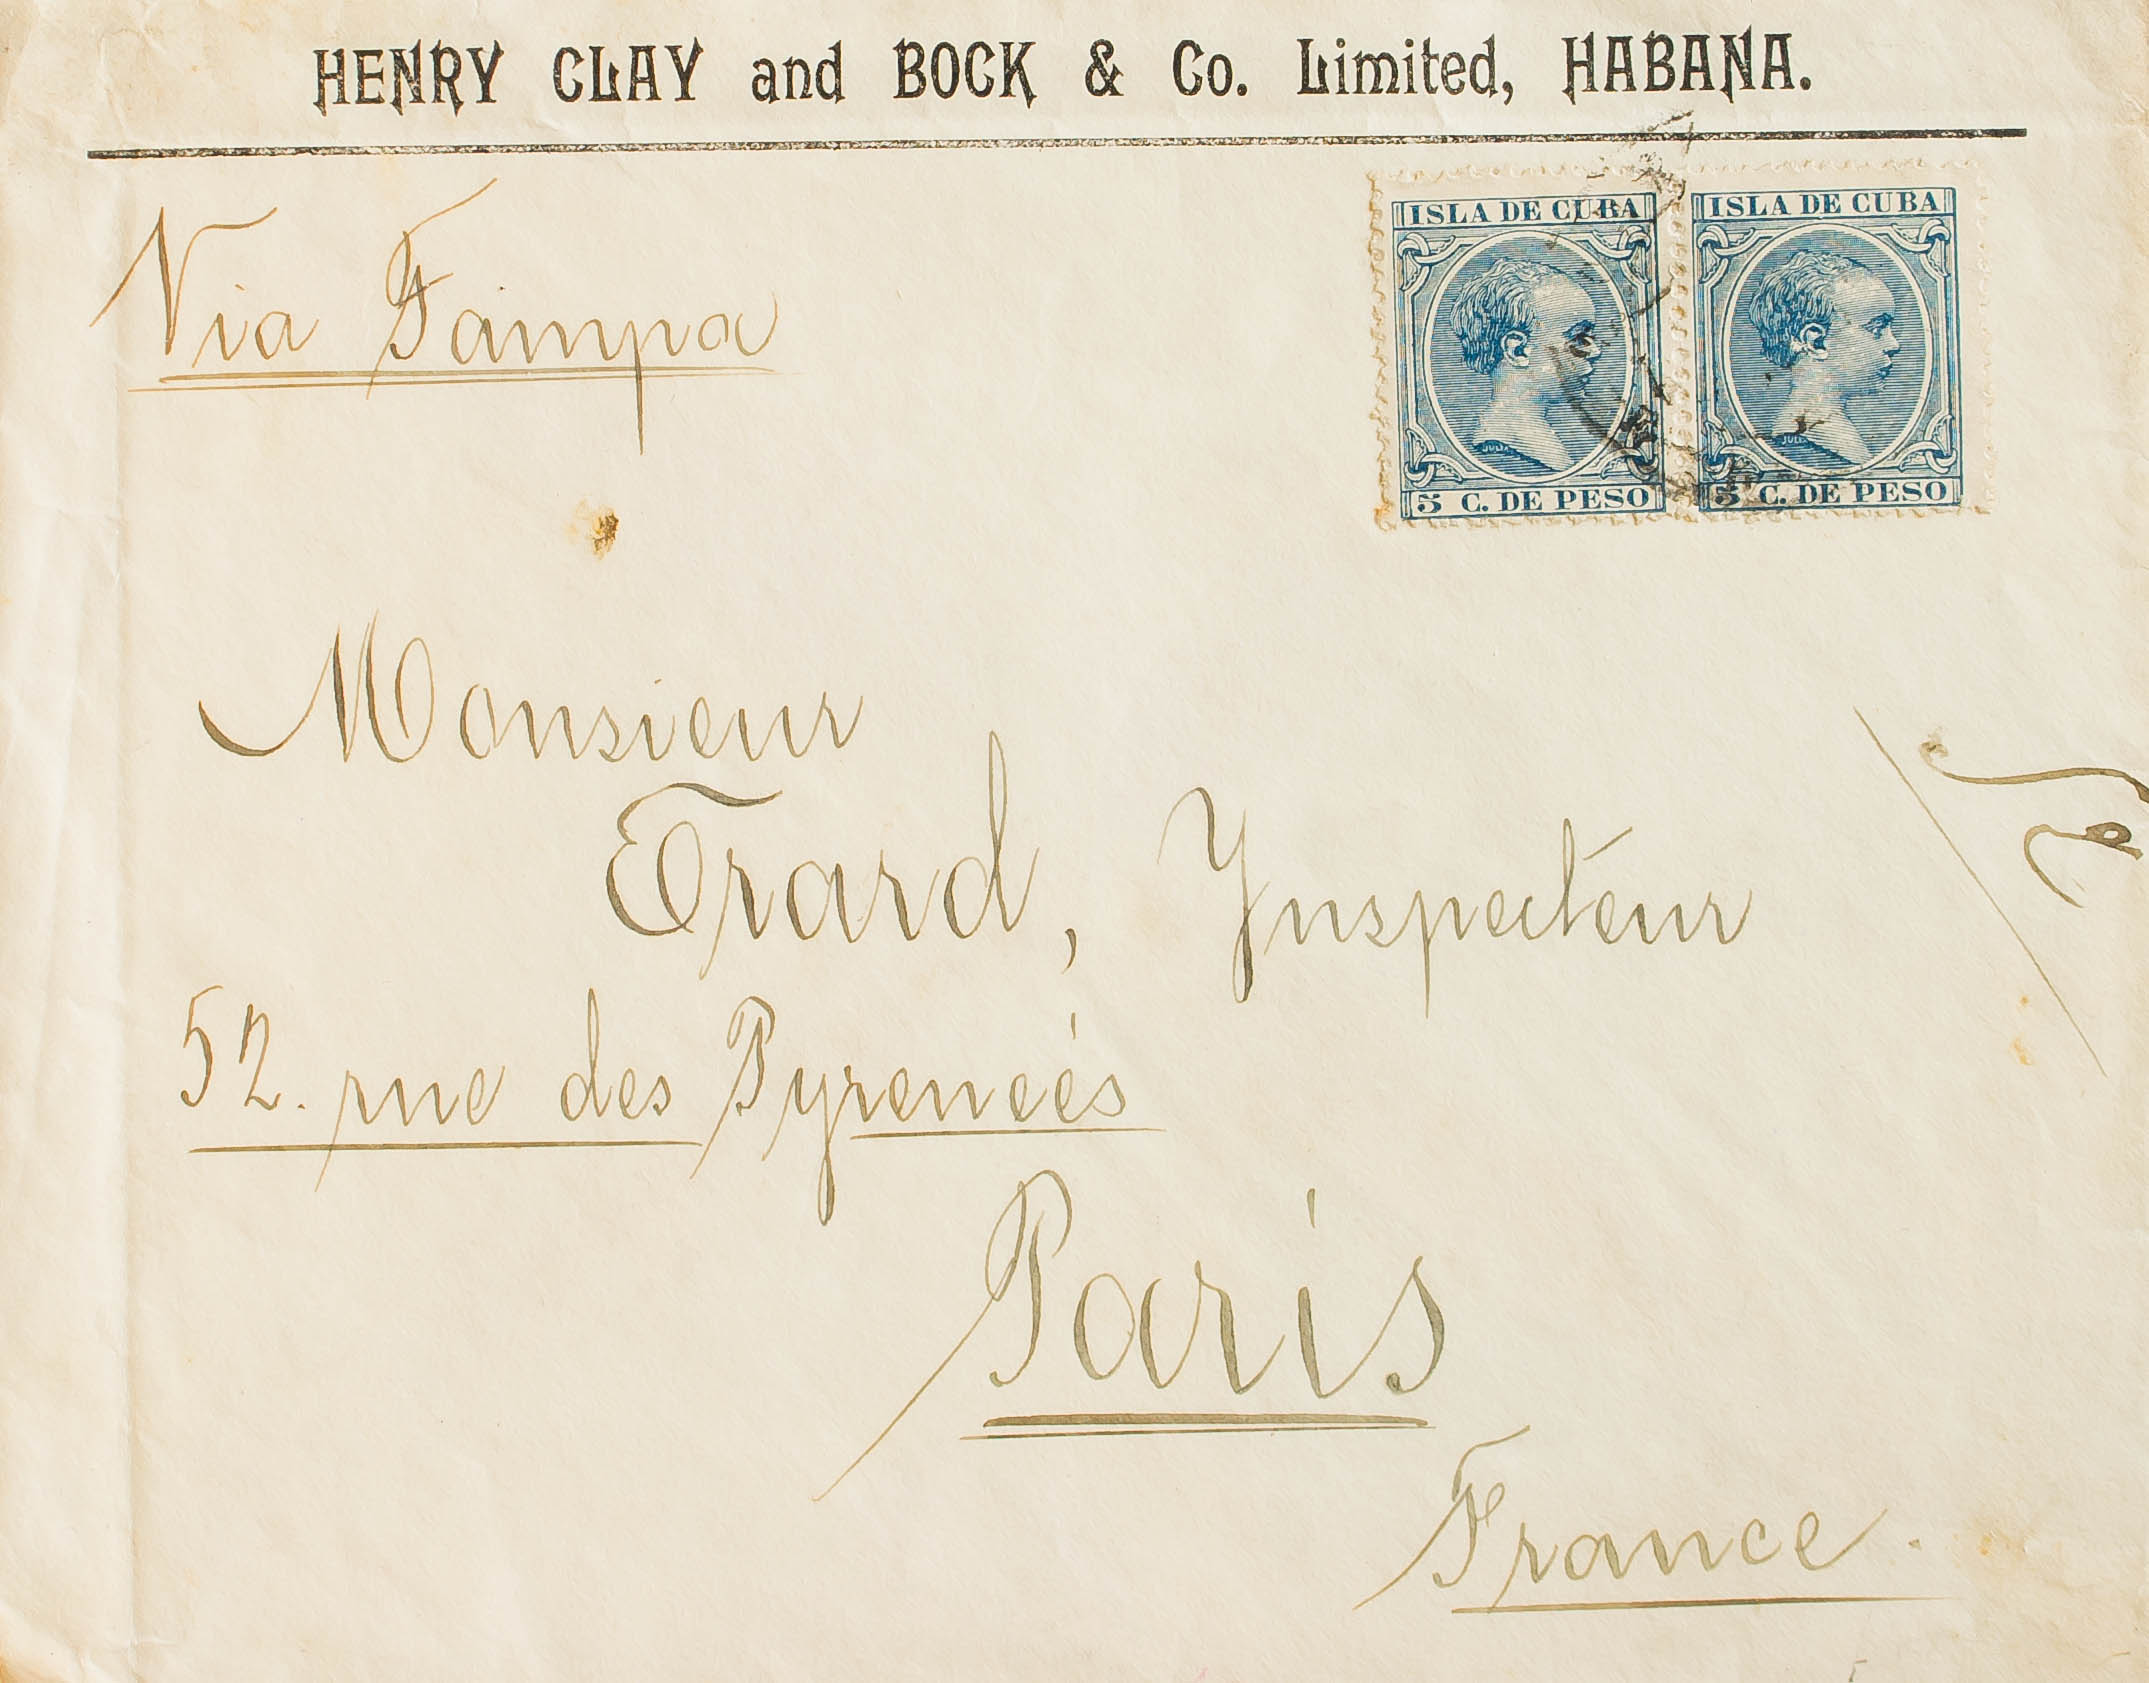 HENRY CLAY and BOCK & Co. Limited, HABANA.
Via Tampa
ISLA DE CUBA
ISLA DE CUBA
5 C. DE PESO
5 C. DE PESO
Monsieur
Erard, Ynspecteur
52. rue des Pyreneés
Paris
France.